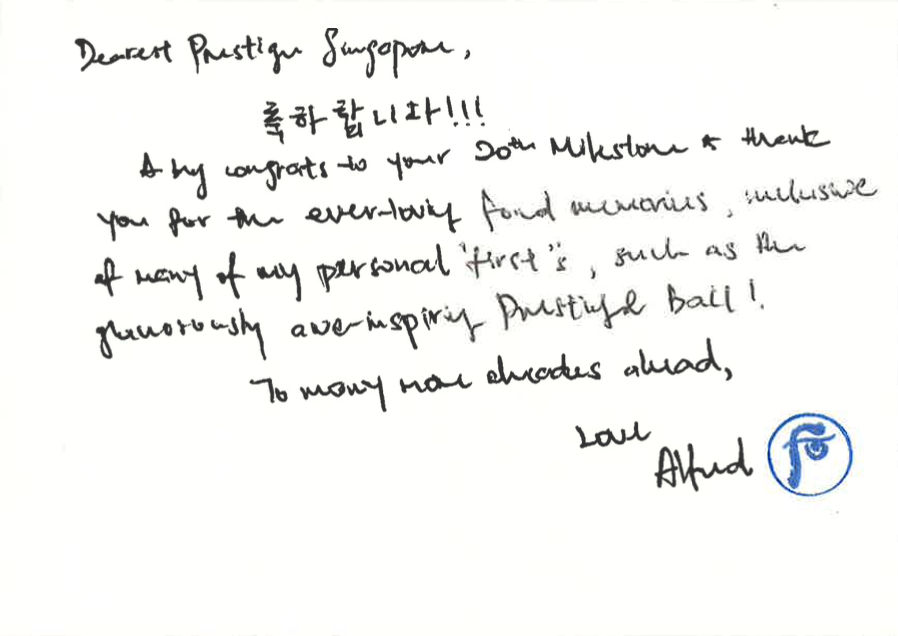 Dearest Prestige Singapore,
축하합니다!!!
A big congrats to your 20th Milestone & thank
you for the ever-loving fond memories, inclusive
of many of my personal "first"s, such as the
glamorously awe-inspiring Prestige Ball!
To many more decades ahead,
Love
Alfred